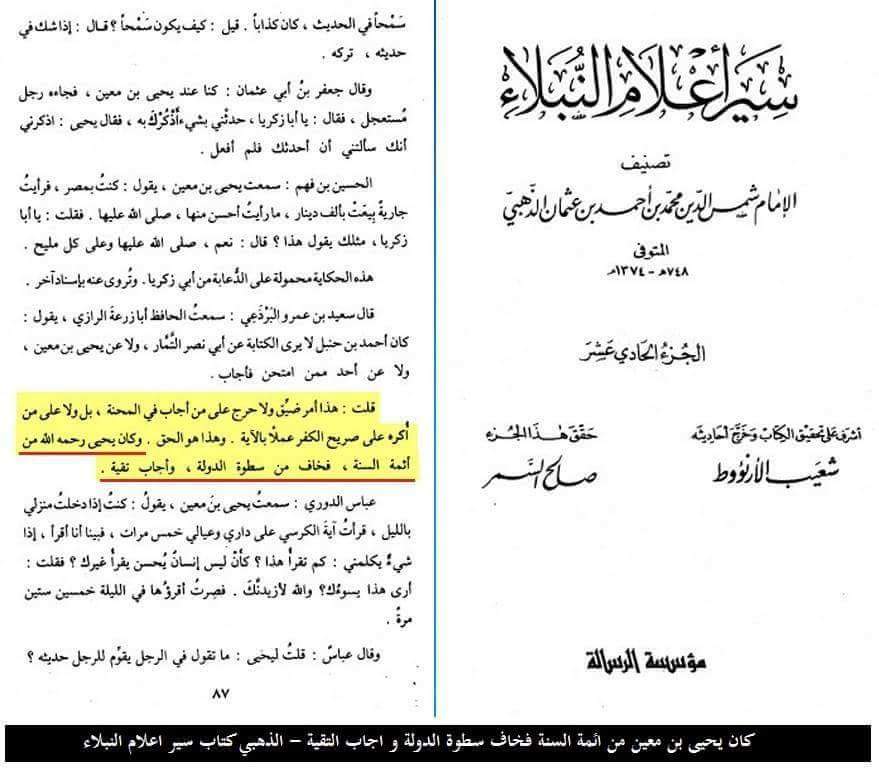 سير أعلام النبلاء
تصنيف
الإمام شمس الدين محمد بن أحمد بن عثمان الذهبي
المتوفى
٧٤٨هـ - ١٣٧٤م
الجزء الحادي عشر
أشرف على تحقيق الكتاب وخرّج أحاديثه
شعيب الأرنؤوط
حقق هذا الجزء
صالح السمر
مؤسسة الرسالة
سَمْحاً في الحديث ، كان كذاباً . قيل : كيف يكون سَمْحاً ؟ قال : إذا شك في
حديثه ، تركه .
وقال جعفر بنُ أبي عثمان : كنا عند يحيى بن معين ، فجاءه رجل
مُستعجل ، فقال : يا أبا زكريا ، حدثني بشيء أَذْكُرْكَ به ، فقال يحيى : اذكرني
أنك سألتني أن أحدثك فلم أفعل .
الحسين بن فهم : سمعت يحيى بن معين ، يقول : كنتُ بمصر ، فرأيتُ
جاريةً بِيعَتْ بألف دينار ، ما رأيتُ أحسن منها ، صلى الله عليها . فقلت : يا أبا
زكريا ، مثلك يقول هذا ؟ قال : نعم ، صلى الله عليها وعلى كل مليح .
هذه الحكاية محمولة على الدُّعابة من أبي زكريا . وتُروى عنه بإسناد آخر .
قال سعيد بن عمرو البَرْذَعي : سمعتُ الحافظ أبا زرعة الرازي ، يقول :
كان أحمد بن حنبل لا يرى الكتابة عن أبي نصر التَّمَّار ، ولا عن يحيى بن معين ،
ولا عن أحد ممن امتحن فأجاب .
قلت : هذا أمر ضيِّق ولا حرج على من أجاب في المحنة ، بل ولا على من
أُكره على صريح الكفر عملًا بالآية . وهذا هو الحق . وكان يحيى رحمه الله من
أئمة السنة ، فخاف من سطوة الدولة ، وأجاب تقية .
عباس الدوري : سمعتُ يحيى بنَ معين ، يقولُ : كنتُ إذا دخلتُ منزلي
بالليل ، قرأتُ آيةَ الكرسي على داري وعيالي خمس مرات ، فبينا أنا أقرأ ، إذا
شيءٌ يكلمني : كم تقرأ هذا ؟ كأنْ ليس إنسانٌ يُحسن يقرأ غيرك ؟ فقلت :
أرى هذا يسوءُك؟ والله لأزيدنَّكَ . فصِرتُ أقرؤها في الليلة خمسين ستين
مرةً .
وقال عباسٌ : قلتُ ليحيى : ما تقول في الرجل يقوِّم للرجل حديثه ؟
٨٧
كان يحيى بن معين من ائمة السنة فخاف سطوة الدولة و اجاب التقية – الذهبي كتاب سير اعلام النبلاء